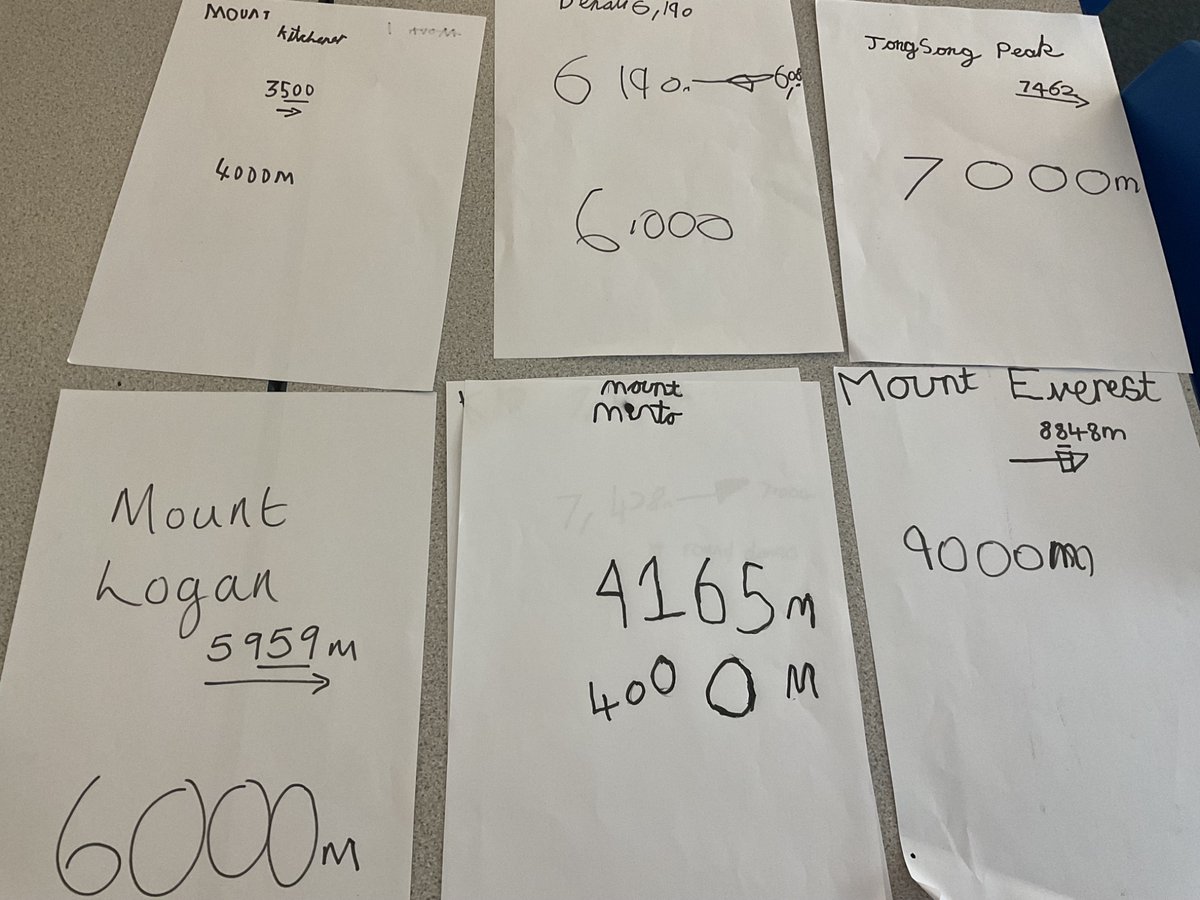 MOUNT
Kitchener
3500
4000M
Denali 6,190
6 190.
6.000
JongSong Peak
7462
7000m
Mount
Logan
5959m
6000M
mount
minto
7,428
round down
4165m
4000 M
Mount Everest
8848m
9000m